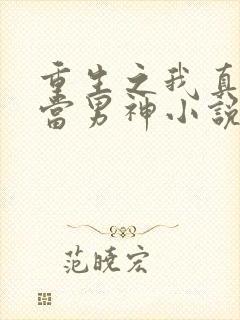 重生之我真
當男神小說
范曉宏